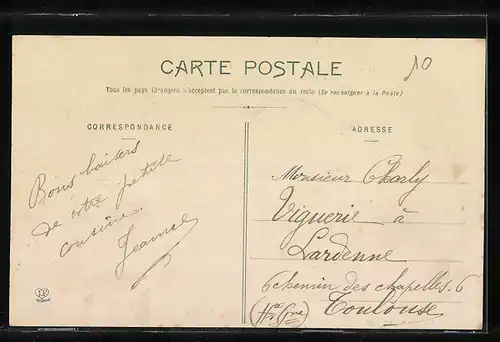 CARTE POSTALE
10
Tous les pays étrangers n'acceptent pas la correspondance au recto (Se renseigner à la Poste)
CORRESPONDANCE
Bons baisers
de votre petite
cousine.
Jeanne
ADRESSE
Monsieur Charly
Viguerie à
Lardenne
6 chemin des chapelles. 6
Toulouse
(Hte Gne)